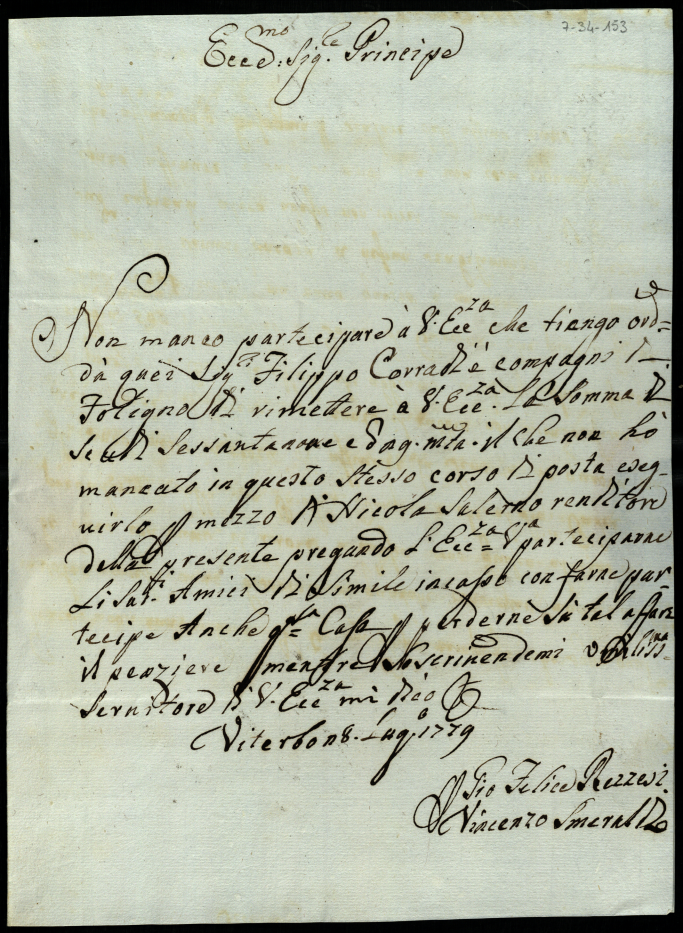 7-34-153
Ecc.mo Sig.re Principe
Non manco partecipare à V. Ecc.za che tiengo ord.e
dà quei Sig.ri Filippo Corradi è compagni di
Foligno di rimettere à V. Ecc.za la somma di
scudi sessantanove e il che non hò
mancato in questo stesso corso di posta eseg-
uirlo p mezzo di Nicola Salerno renditore
della presente pregando l'Ecc.za V.a parteciparne
li Sud.ti Amici di simile incasso con farne par-
tecipe Anche q.sta Casa p perderne sù tal affare
il penziere mentre soscrivendomi Umiliss.mo
Servitore di V. Ecc.za mi dico
Viterbo 8. Lug.o 1779
Pio Felice Rezzesi
Vincenzo Smeraldi